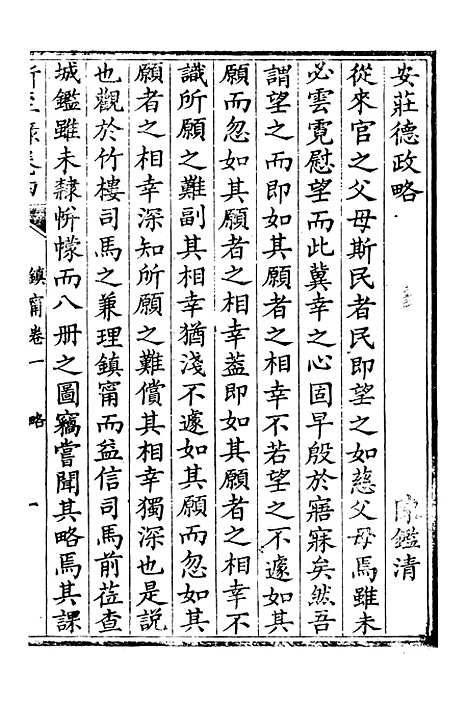 安莊德政略
鑑清
從來官之父母斯民者民即望之如慈父母焉雖未
必雲霓慰望而此冀幸之心固早殷於寤寐矣然吾
謂望之而即如其願者之相幸不若望之不遽如其
願而忽如其願者之相幸葢即如其願者之相幸不
識所願之難副其相幸猶淺不遽如其願而忽如其
願者之相幸深知所願之難償其相幸獨深也是說
也觀於竹樓司馬之兼理鎮甯而益信司馬前莅查
城鑑雖未隸帡幪而八册之圖竊嘗聞其略焉其課
卷四
鎮甯卷一
略
一